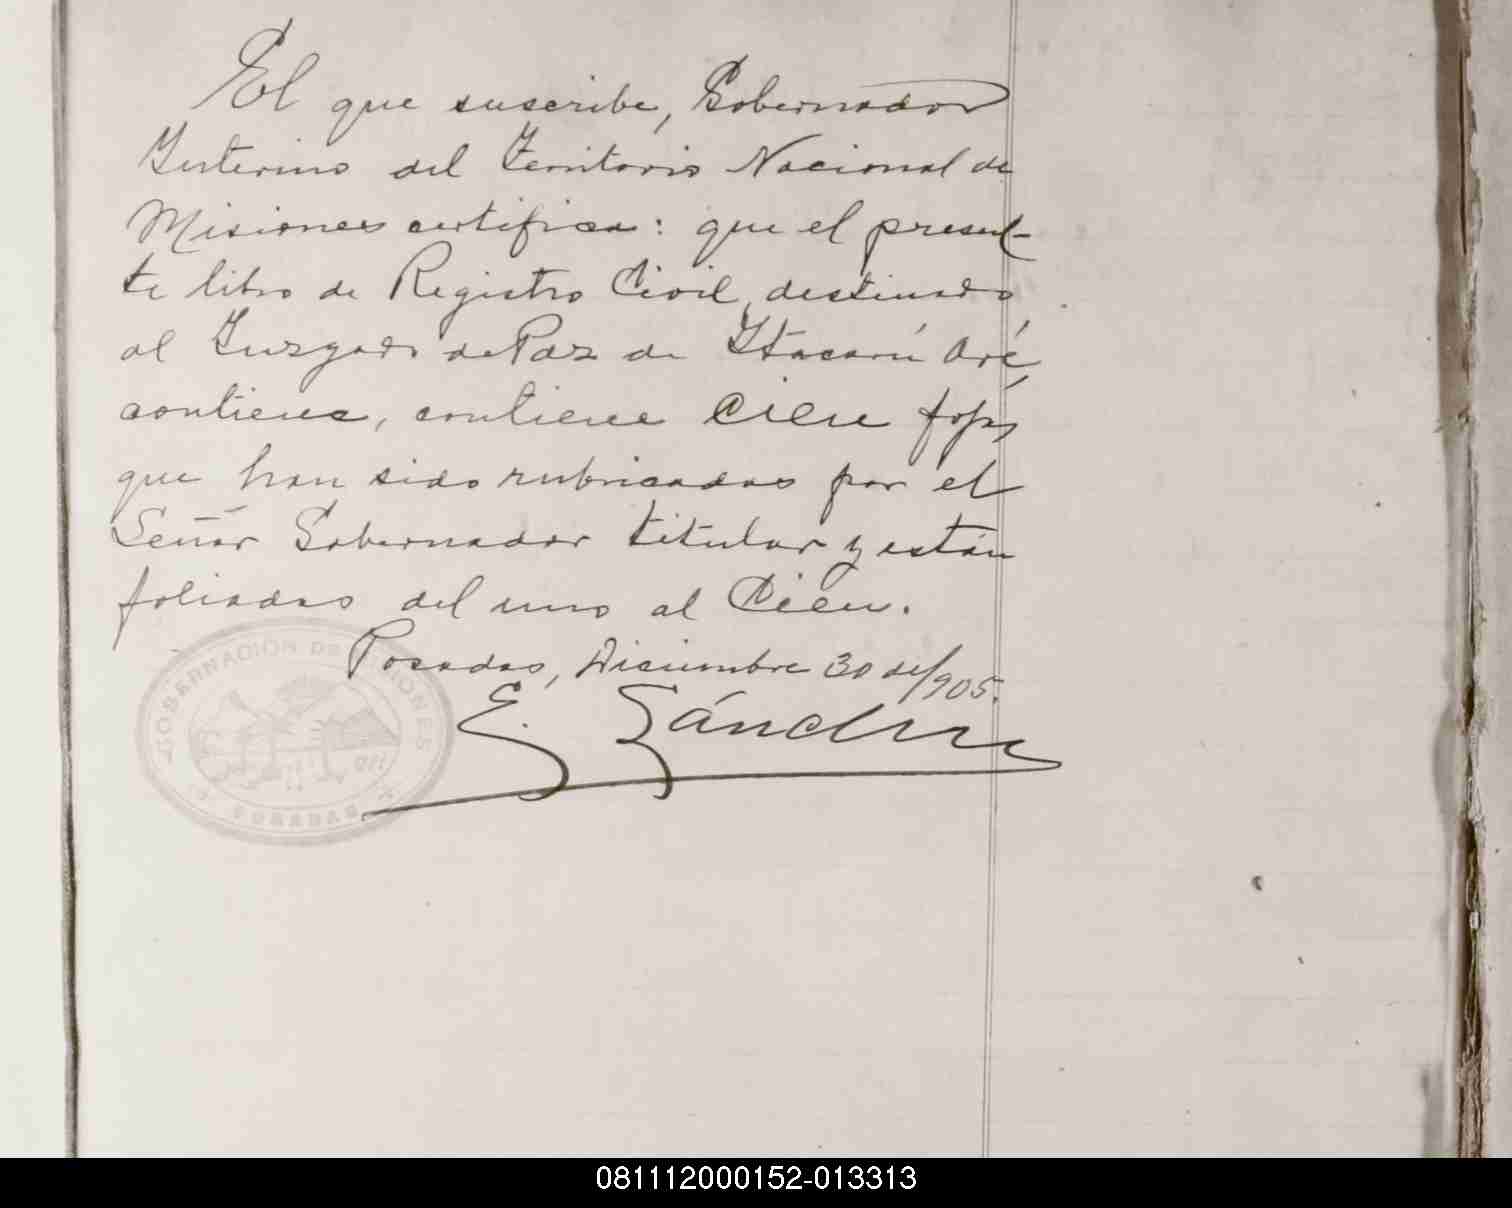 El que suscribe, Gobernador
Interino del Territorio Nacional de
Misiones certifica: que el presen-
te libro de Registro Civil, destinado
al Juzgado de Paz de Itacarú Aré,
contiene, contiene cien fojas,
que han sido rubricadas por el
Señor Gobernador titular y están
foliadas del uno al Cien.
Posadas, Diciembre 30 de/905.
E. Sánchez
GOBERNACION DE MISIONES
POSADAS
081112000152-013313